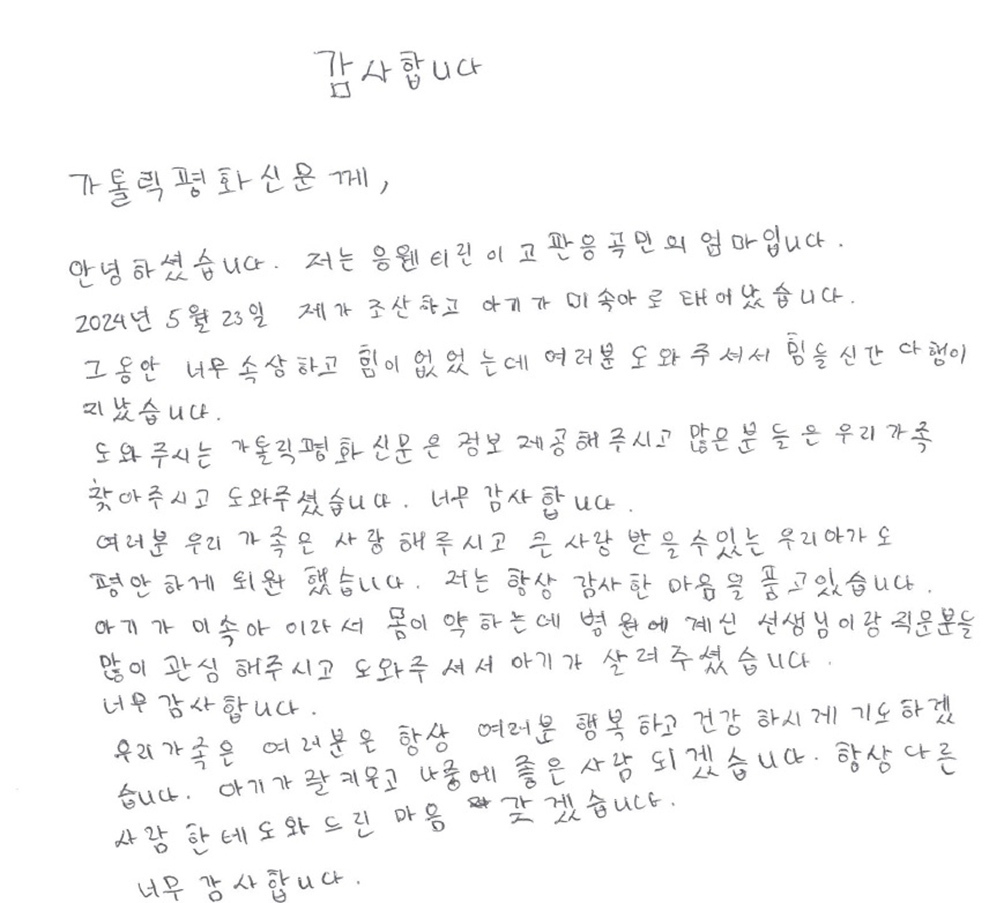 감사합니다
가톨릭평화신문께,
안녕하셨습니다. 저는 응웬티린이고 판응곡민의 엄마입니다.
2024년 5월 23일 제가 조산하고 아기가 미숙아로 태어났습니다.
그동안 너무 속상하고 힘이 없었는데 여러분 도와주셔서 힘들 신간 다행이
지났습니다.
도와주시는 가톨릭평화신문은 정보 제공해주시고 많은분들은 우리가족
찾아주시고 도와주셨습니다. 너무 감사합니다.
여러분 우리 가족은 사랑해주시고 큰 사랑 받을수있는 우리아가도
평안하게 퇴원했습니다. 저는 항상 감사한 마음을 품고있습니다.
아기가 미속아이라서 몸이 약하는데 병원에 계신 선생님이랑 직문분들
많이 관심해주시고 도와주셔서 아기가 살려주셨습니다.
너무 감사합니다.
우리가족은 여러분은 항상 여러분 행복하고 건강하시게 기도하겠
습니다. 아기가 잘 키우고 나중에 좋은 사람 되겠습니다. 항상 다른
사람한테 도와드린 마음 갖겠습니다.
너무 감사합니다.